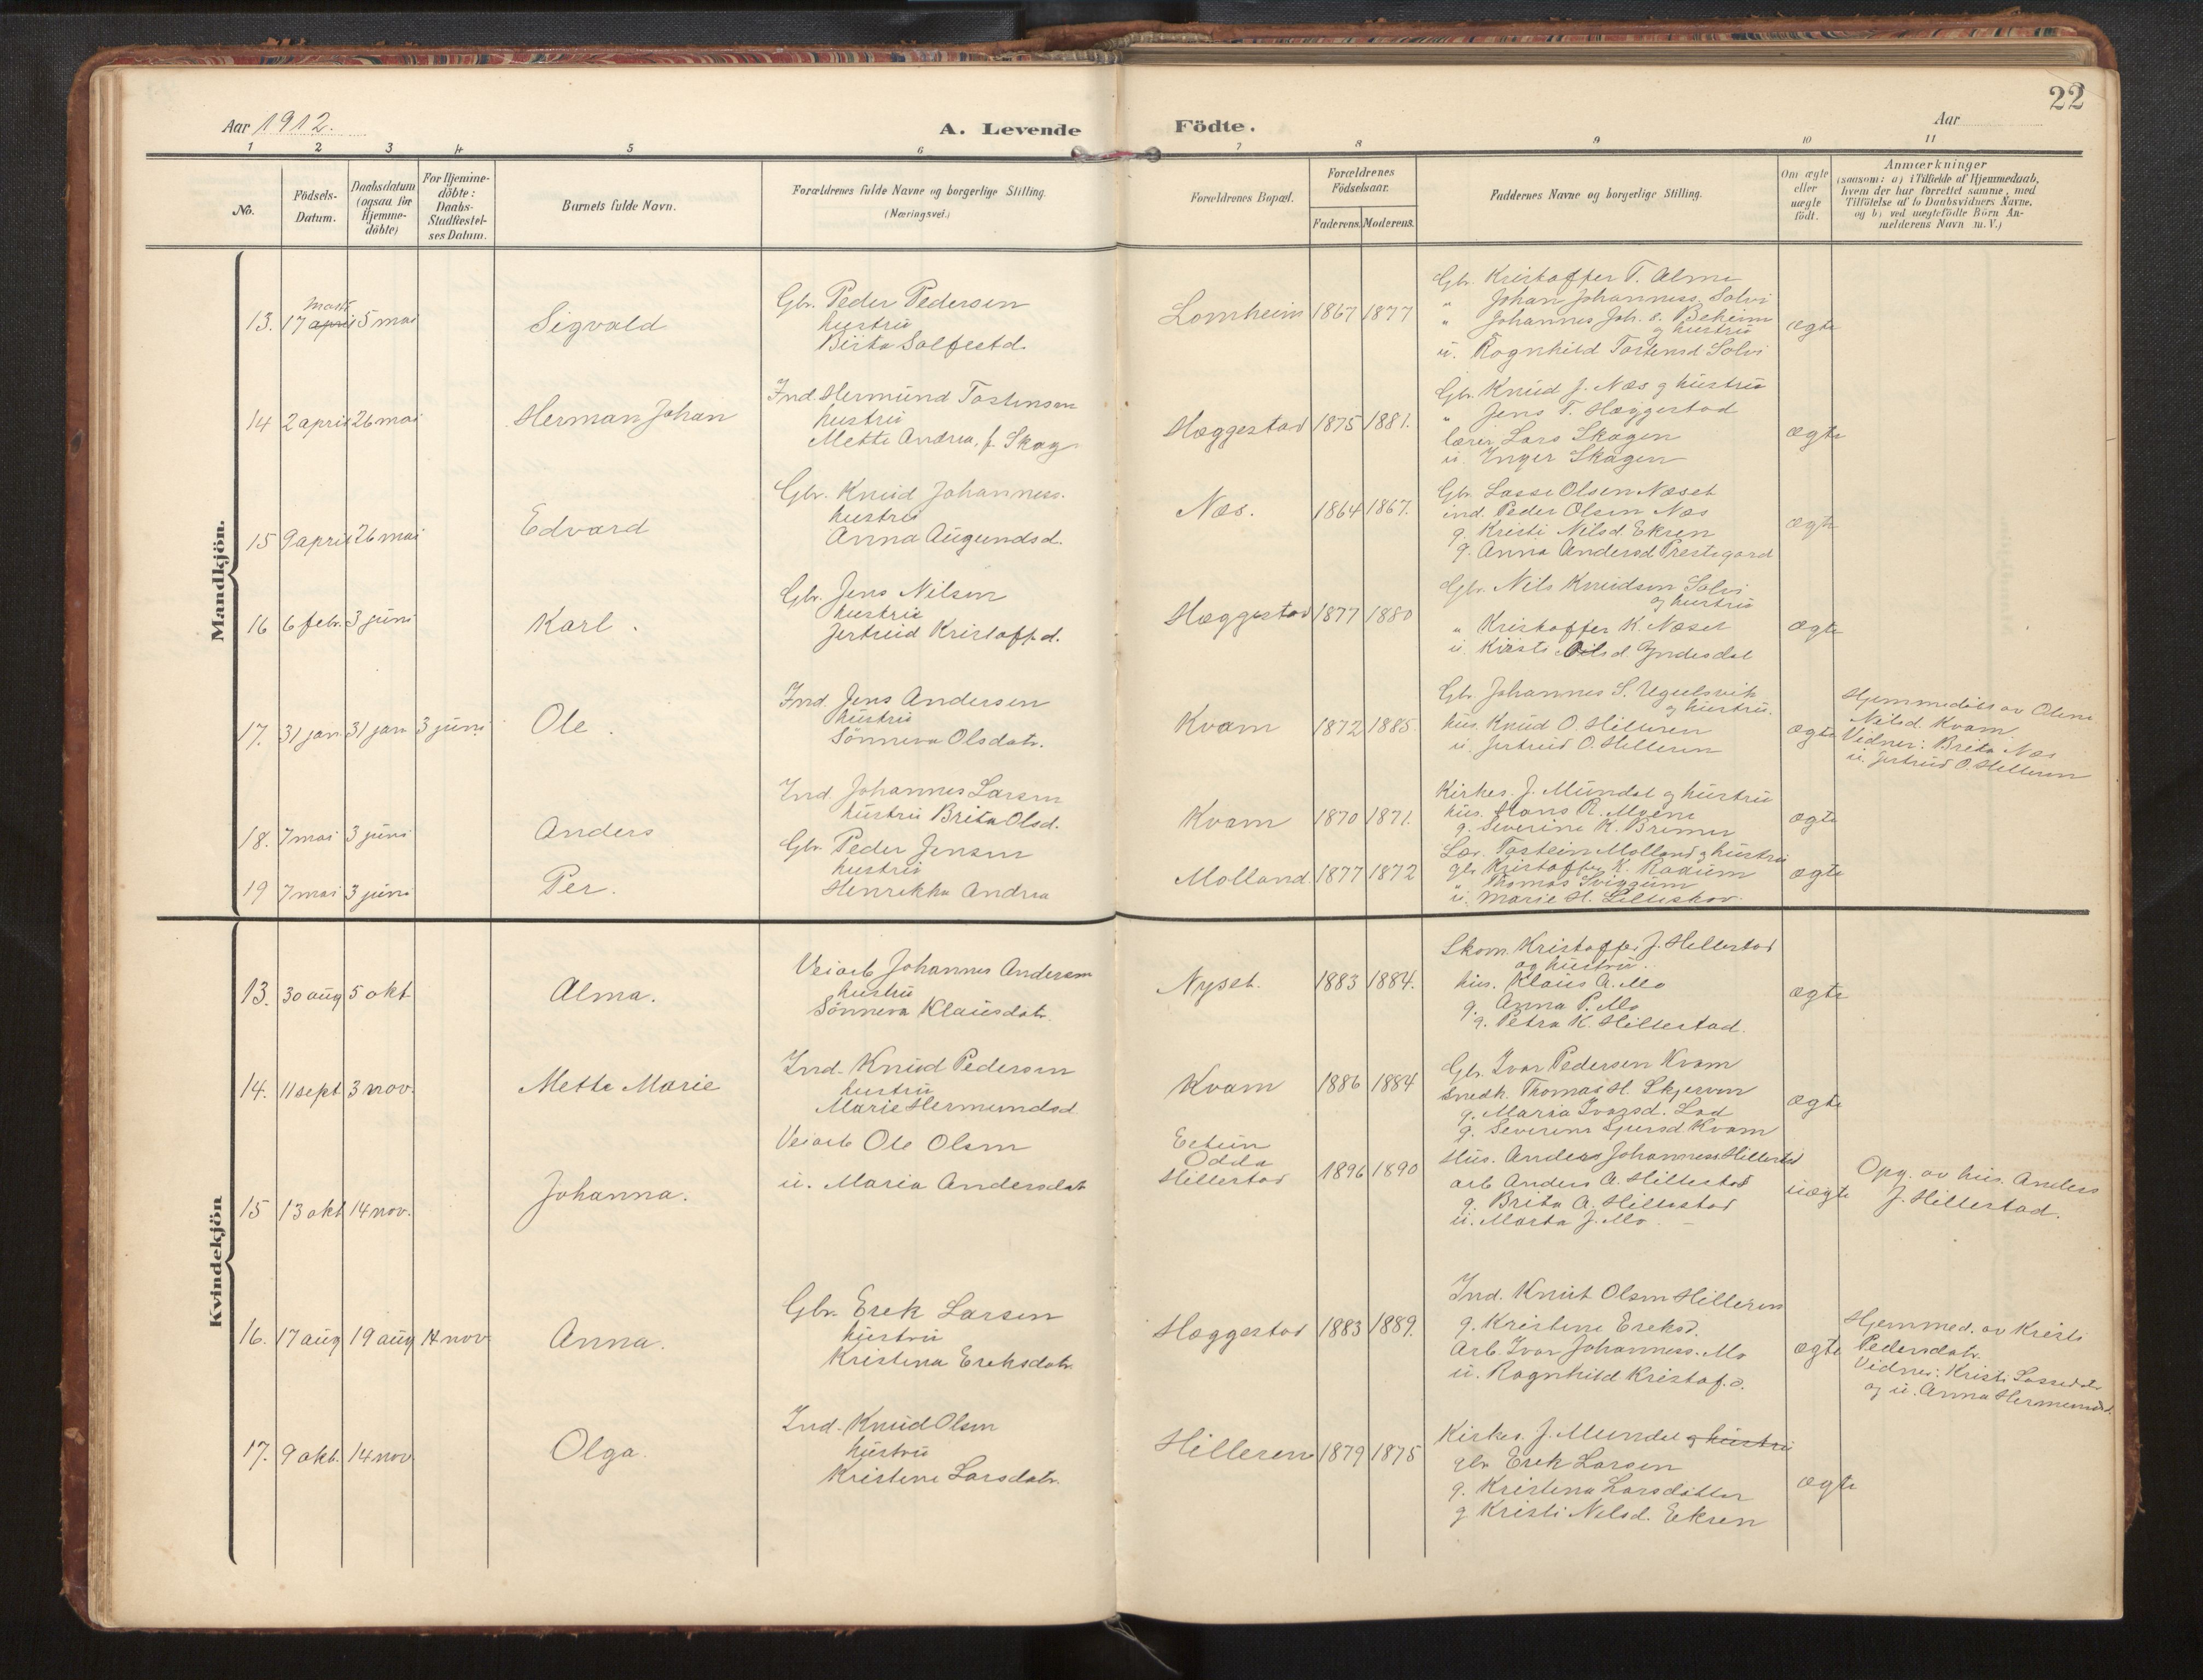 22
Aar 1912.
A. Levende Födte.
Aar
1 2 3 4 5 6 7 8 9 10 11
No.
Födsels-
Datum.
Daabsdatum
(ogsaa for
Hjemme-
döbte)
For Hjemme-
döbte:
Daabs-
Stadfæstel-
ses Datum.
Barnets fulde Navn.
Forældrenes fulde Navne og borgerlige Stilling.
(Næringsvei.)
Forældrenes Bopæl.
Forældrenes
Födselsaar.
Faderens. Moderens.
Faddernes Navne og borgerlige Stilling.
Om ægte
eller
uægte
født.
Anmærkninger
(saasom: a) i Tilfælde af Hjemmedaab,
hvem der har forrettet samme, med
Tilföielse af to Daabsvidners Navne.
og b) ved uægtefödte Börn An-
melderens Navn m. V.)
Mandkjön.
13.
mars
17 april
5 mai
Sigvald
Gbr. Peder Pedersen
hustru
Brita Solfestd.
Lomheim
1867
1877
Gbr. Kristoffer T. Alme
" Johan Johanness. Solvi
" Johannes Joh. s. Beheim
og hustru
u. Rognhild Tostensd Solvi
ægte
14
2 april
26 mai
Herman Johan
Ind. Hermund Tostensen
hustru
Mette Andrea, f. Skag
Hæggestad
1875
1881.
Gbr. Knud J. Næs og hustru
" Jens T. Hæggestad
lærer Lars Skagen
u. Inger Skagen
ægte
15
9 april
26 mai
Edvard
Gbr. Knud Johanness.
hustru
Anna Augundsd.
Næs.
1864
1867.
Gbr Lasse Olsen Næset
ind. Peder Olsen Næs
g. Kristi Nilsd. Eksen
g. Anna Andersd Prestegard
ægte
16
6 febr.
3 juni
Karl.
Gbr. Jens Nilsen
hustru
Jertrud Kristoffd.
Hæggestad
1877
1880
Gbr. Nils Knudsen Solvi
og hustru
" Kristoffer K. Næset
u. Kirsti Nilsd. Yndesdal
ægte
17.
31 jan
31 jan
3 juni
Ole.
Ind. Jens Andersen
hustru
Sönneva Olsdatr.
Kvam
1872
1885.
Gbr. Johannes S. Ugulsvik
og hustru.
hus. Knud O. Hilleren
u. Jertrud O. Hilleren
ægte
Hjemmedöbt av Oline
Nilsd. Kvam.
Vidner: Brita Næs
u. Jertrud O. Hilleren
18.
7 mai
3 juni
Anders
Ind. Johannes Larsen
hustru Brita Olsd.
Kvam
1870
1871.
Kirkes. J. Mundal og hustru
hus. Hans R. Moene
g. Severine K. Bremer
ægte
19
7 mai
3 juni
Per.
Gbr Peder Jensen
hustru
Henrikka Andrea
Molland.
1877
1872
Lær. Tostein Molland og hustru
gbr Kristoffer K. Raaum
" Thomas Sviggum
u. Marie H. Lilleskov.
ægte
Kvindekjön
13.
30 aug
5 okt
Alma.
Veiarb Johannes Andersen
hustru
Sönneva Klausdatr.
Nyset.
1883
1884.
Skom. Kristoffer J. Hillestad
og hustru.
hus. Klaus A. Mo
g. Anna P. Mo
g. Petra K. Hillestad.
ægte
14.
11 sept
3 nov.
Mette Marie
Ind. Knud Pedersen
hustru
Marie Hermundsd
Kvam
1886
1884
Gbr. Ivar Pedersen Kvam
snedk. Thomas H. Skjerven
g. Maria Ivarsd. Lad
g. Severine Sjursd. Kvam
ægte
15
13 okt
14 nov.
Johanna.
Veiarb Ole Olsen
u. Maria Andersdatr
Odda
Hillestad
1896
1890
Hus. Anders Johanness Hillestad
arb Anders A. Hillestad
g. Brita A. Hillestad
u. Marta J. Mo
uægte
Opg. av hus. Anders
J. Hillestad.
16.
17 aug
19 aug
14 nov
Anna.
Gbr. Erek Larsen
hustru
Kristina Ereksdatr.
Hæggestad
1883
1889.
Ind. Knut Olsen Hilleren
g. Kristene Ereksd.
Arb. Ivar Johanness. Mo
u. Ragnhild Kristof.d.
ægte
Hjemmed. av Kristi
Pedersdatr.
Vidner: Kristi Lassedatr
og u. Anna Hermundsd.
17.
9 okt.
14 nov
Olga.
Ind. Knud Olsen
hustru
Kristene Larsdatr.
Hilleren
1879
1875
Kirkes. J. Mundal og hustru
gbr Erek Larsen
g. Kristina Larsdatter
g Kristi Nilsd. Eksen
ægte